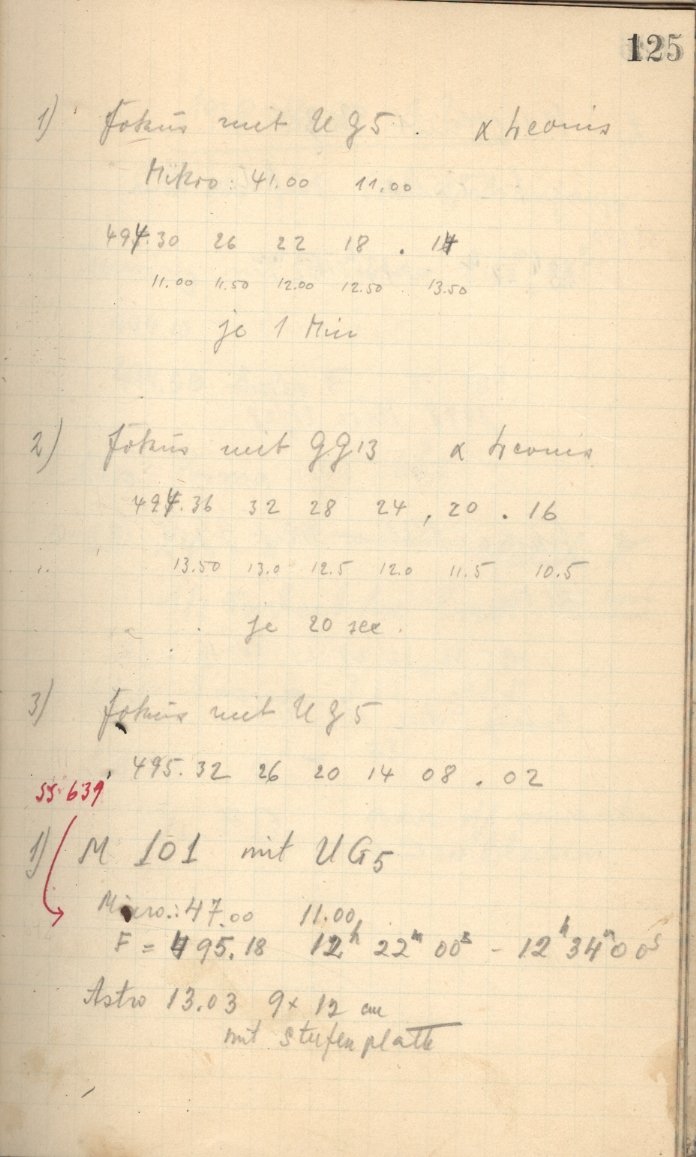 125
1) Fokus mit UG5. α Leonis
Mikro: 41.00 11.00
494.30 26 22 18 . 14
11.00 11.50 12.00 12.50 13.50
je 1 Min
2) Fokus mit GG13 α Leonis
494.36 32 28 24, 20 . 16
13.50 13.0 12.5 12.0 11.5 10.5
je 20 sec.
3) Fokus mit UG5
495.32 26 20 14 08 . 02
SS 639
1) M 101 mit UG5
Micro.: 47.00 11.00
F = 495.18 12h 22m 00s - 12h 34m 00s
Astro 13.03 9 x 12 cm
mit Stufenplatte